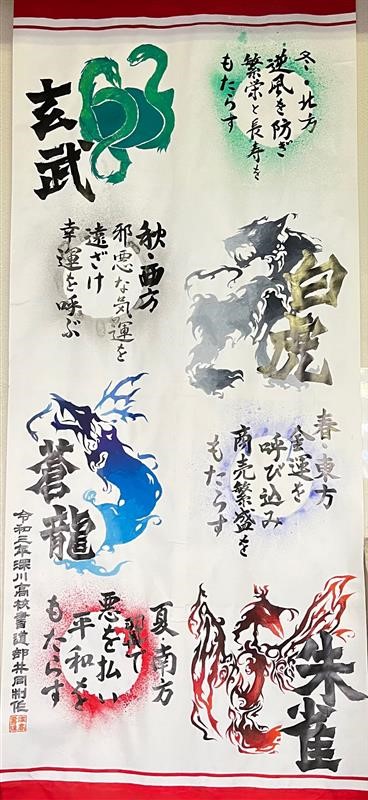 玄武
冬・北方
逆風を防ぎ
繁栄と長寿を
もたらす
白虎
秋・西方
邪悪な気運を
遠ざけ
幸運を呼ぶ
蒼龍
春・東方
金運を
呼び込み
商売繁盛を
もたらす
朱雀
夏・南方
悪を払い
平和を
もたらす
令和三年深川高校書道部共同制作